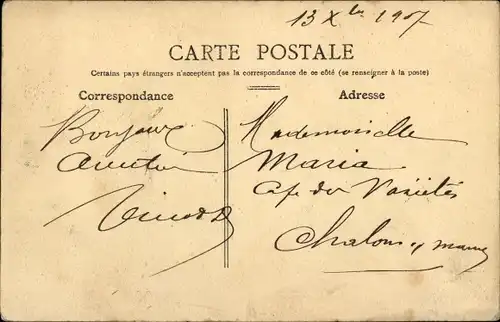 13 Xbre 1907
CARTE POSTALE
Certains pays étrangers n'acceptent pas la correspondance de ce côté (se renseigner à la poste)
Correspondance
Bonjour
Adresse
Mademoiselle
Maria
Café des Variétés
Chalons s/ marne